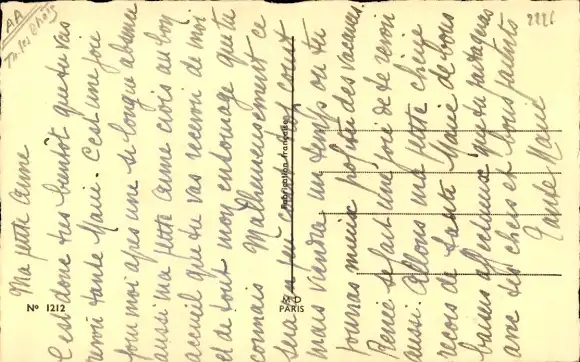 Ma petite Anne
C'est donc très bientôt que tu vas
revoir tante Marie. C'est une joie
pour moi après une si longue absence
aussi ma petite Anne crois au bon
accueil que tu vas recevoir de moi
et de tout mon entourage que tu
connais Malheureusement ce
sera un peu court très court
mais viendra un temps où tu
pourras mieux profiter des vacances.
Renée se fait une joie de te revoir
aussi. Allons ma petite chérie
reçois de tante Marie de doux
baisers affectueux que tu partageras
avec tes chers et bons parents
Tante Marie
AA
2226
Fabrication française
M D
PARIS
N° 1212